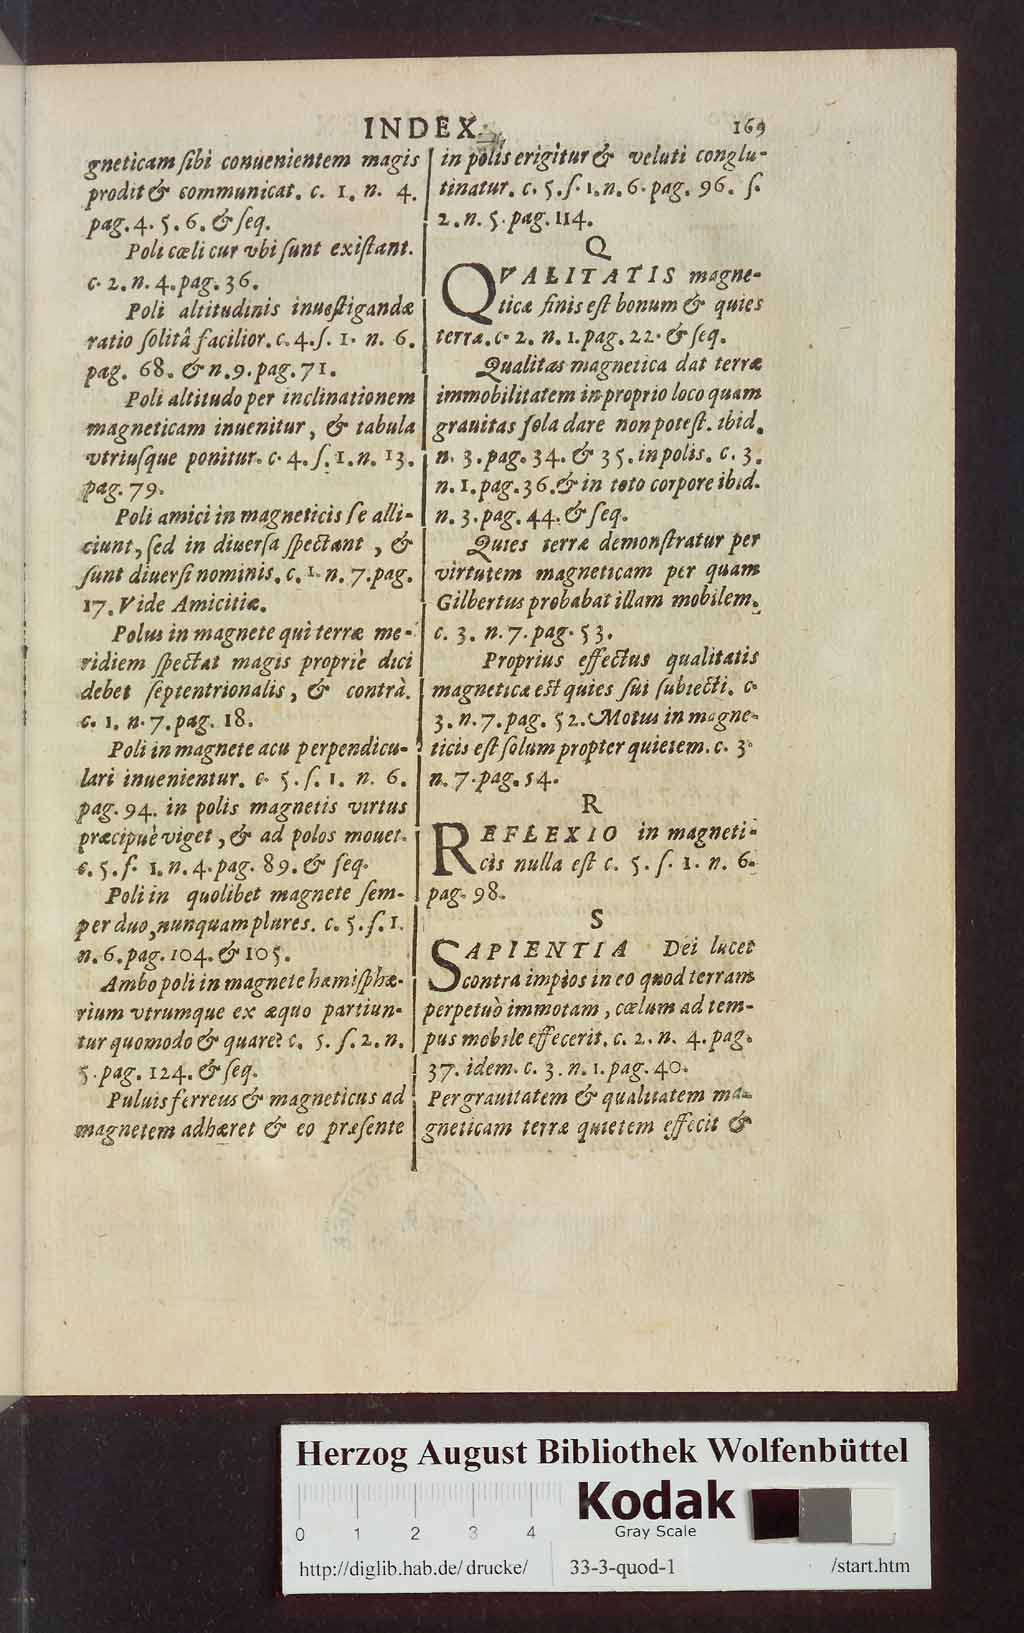 INDEX. 169
gneticam sibi conuenientem magis
prodit & communicat. c. 1. n. 4.
pag. 4. 5. 6. & seq.
Poli cœli cur vbi sunt existant.
c. 2. n. 4. pag. 36.
Poli altitudinis inuestigandæ
ratio solitâ facilior. c. 4. s. 1. n. 6.
pag. 68. & n. 9. pag. 71.
Poli altitudo per inclinationem
magneticam inuenitur, & tabula
vtriusque ponitur. c. 4. s. 1. n. 13.
pag. 79.
Poli amici in magneticis se alli-
ciunt, sed in diuersa spectant, &
sunt diuersi nominis. c. 1. n. 7. pag.
17. Vide Amicitiæ.
Polus in magnete qui terræ me-
ridiem spectat magis propriè dici
debet septentrionalis, & contrà.
c. 1. n. 7. pag. 18.
Poli in magnete acu perpendicu-
lari inuenientur. c. 5. s. 1. n. 6.
pag. 94. in polis magnetis virtus
præcipuè viget, & ad polos mouet.
c. 5. s. 1. n. 4. pag. 89. & seq.
Poli in quolibet magnete sem-
per duo, nunquam plures. c. 5. s. 1.
n. 6. pag. 104. & 105.
Ambo poli in magnete hæmisphæ-
rium vtrumque ex æquo partiun-
tur quomodo & quare? c. 5. s. 2. n.
5. pag. 124. & seq.
Puluis ferreus & magneticus ad
magnetem adhæret & eo præsente
in polis erigitur & veluti conglu-
tinatur. c. 5. s. 1. n. 6. pag. 96. s.
2. n. 5. pag. 114.
Q
QVALITATIS magne-
ticæ finis est bonum & quies
terræ. c. 2. n. 1. pag. 22. & seq.
Qualitas magnetica dat terræ
immobilitatem in proprio loco quam
grauitas sola dare non potest. ibid.
n. 3. pag. 34. & 35. in polis. c. 3.
n. 1. pag. 36. & in toto corpore ibid.
n. 3. pag. 44. & seq.
Quies terræ demonstratur per
virtutem magneticam per quam
Gilbertus probabat illam mobilem.
c. 3. n. 7. pag. 53.
Proprius effectus qualitatis
magneticæ est quies sui subiecti. c.
3. n. 7. pag. 52. Motus in magne-
ticis est solum propter quietem. c. 3.
n. 7. pag. 54.
R
REFLEXIO in magneti-
cis nulla est c. 5. s. 1. n. 6.
pag. 98.
S
SAPIENTIA Dei lucet
contra impios in eo quod terram
perpetuò immotam, cœlum ad tem-
pus mobile effecerit. c. 2. n. 4. pag.
37. idem. c. 3. n. 1. pag. 40.
Per grauitatem & qualitatem ma-
gneticam terræ quietem effecit &
Herzog August Bibliothek Wolfenbüttel
0 1 2 3 4
Kodak
Gray Scale
http://diglib.hab.de/drucke/ 33-3-quod-1 /start.htm